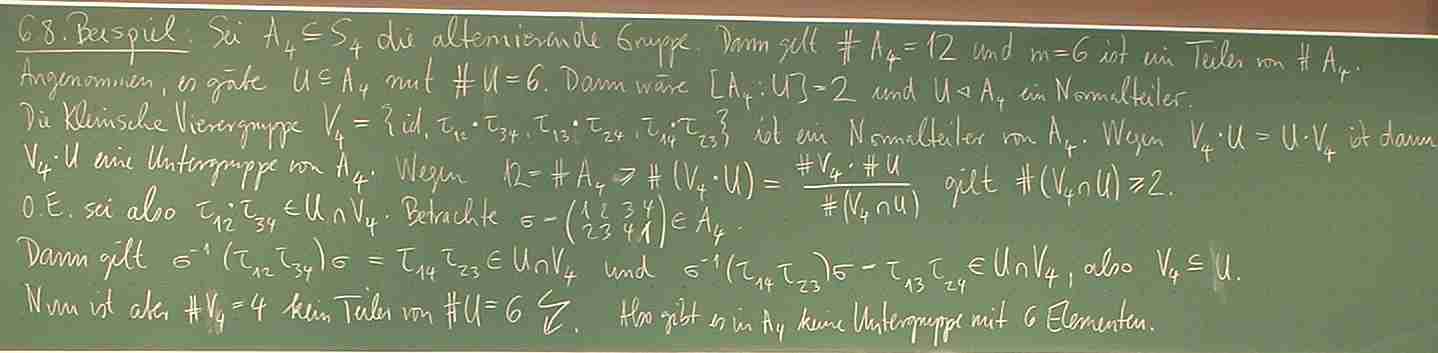 68. Beispiel: Sei A₄ ⊆ S₄ die alternierende Gruppe. Dann gilt # A₄ = 12 und m=6 ist ein Teiler von # A₄.
Angenommen, es gäbe U ⊆ A₄ mit # U = 6. Dann wäre [A₄:U]=2 und U ◁ A₄ ein Normalteiler.
Die Kleinsche Vierergruppe V₄ = {id, τ₁₂·τ₃₄, τ₁₃·τ₂₄, τ₁₄·τ₂₃} ist ein Normalteiler von A₄. Wegen V₄·U = U·V₄ ist dann
V₄·U eine Untergruppe von A₄. Wegen 12 = # A₄ ⩾ # (V₄·U) = #V₄·#U / #(V₄∩U) gilt #(V₄∩U) ⩾ 2.
O.E. sei also τ₁₂·τ₃₄ ∈ U∩V₄. Betrachte σ = (1 2 3 4 / 2 3 4 1) ∈ A₄.
Dann gilt σ⁻¹(τ₁₂τ₃₄)σ = τ₁₄τ₂₃ ∈ U∩V₄ und σ⁻¹(τ₁₄τ₂₃)σ = τ₁₃τ₂₄ ∈ U∩V₄, also V₄ ⊆ U.
Nun ist aber #V₄ = 4 kein Teiler von #U = 6 ↯. Also gibt es in A₄ keine Untergruppe mit 6 Elementen.